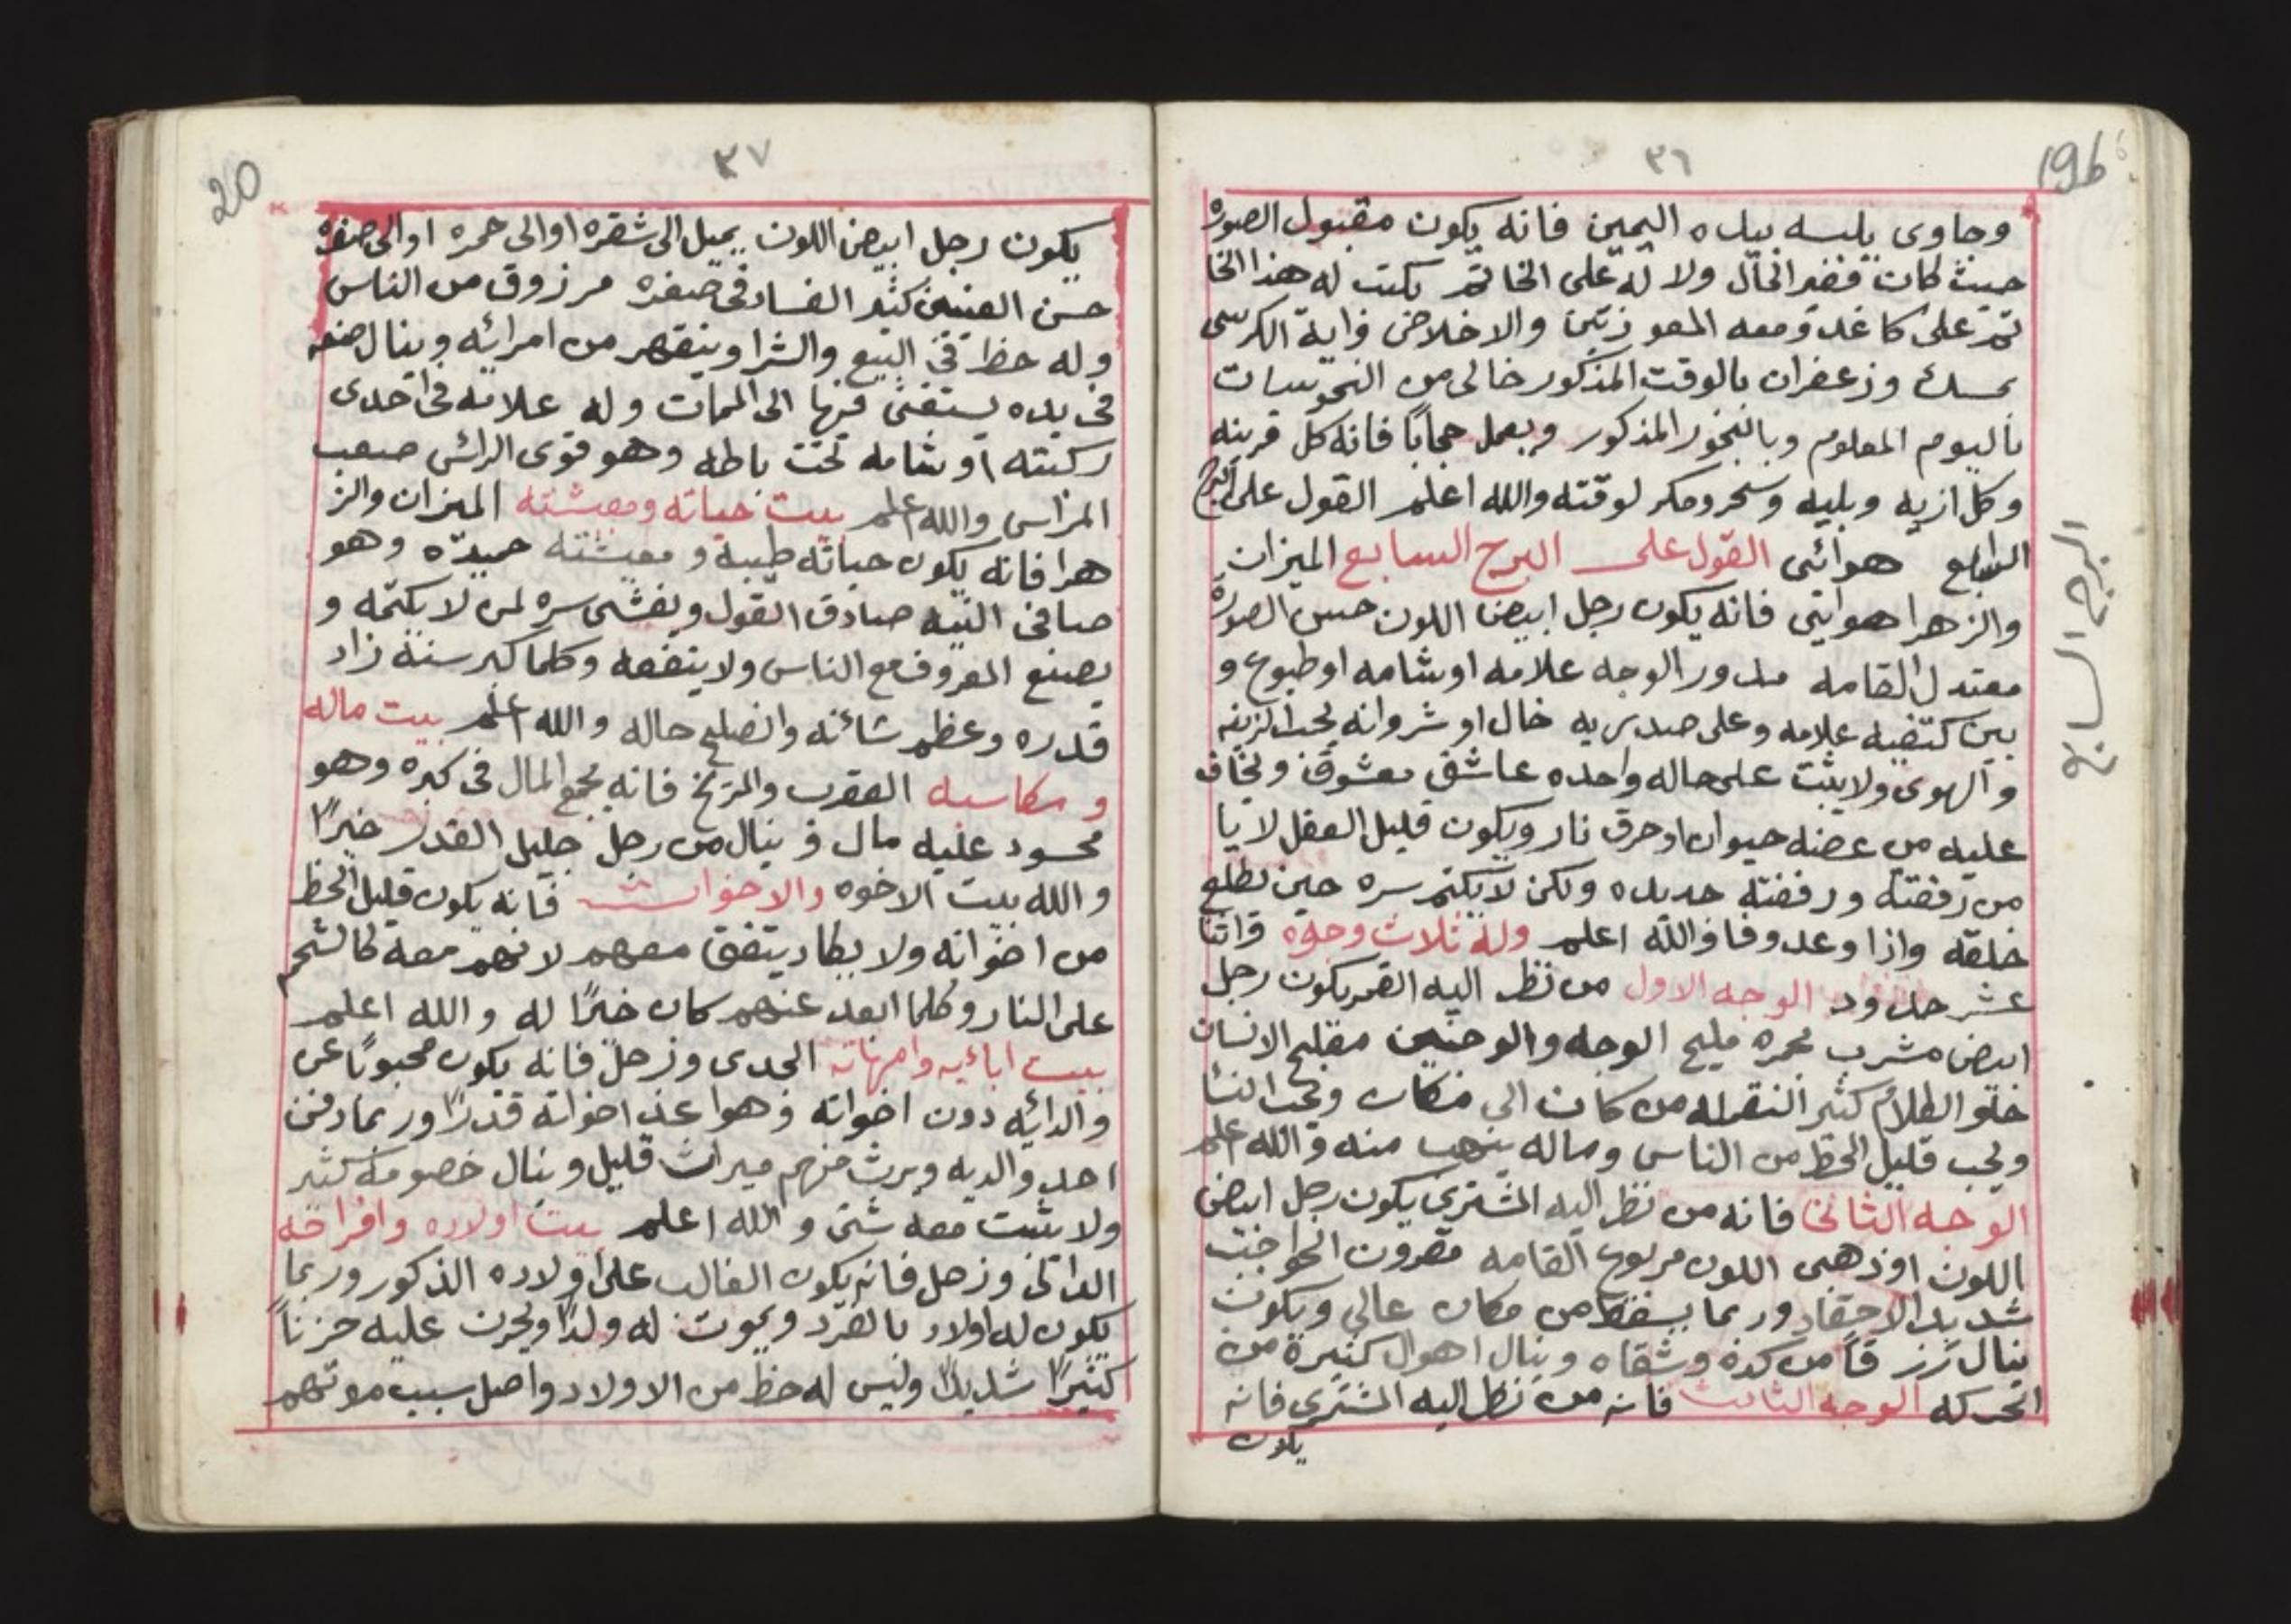 ٣٦
196
وجاوى يلبسه بيده اليمين فانه يكون مقبول الصوره
حيث كان فقير الحال ولا له على الخاتم يكتب له هذا الخا
تم على كاغد ومعه المعوذتين والاخلاص واية الكرسى
بمسك وزعفران بالوقت المذكور خالى من النحوسات
باليوم المعلوم وبالبخور المذكور ويعمل حجاباً فانه كل قرينه
وكل ازيه وبليه وسحر ومكر لوقته والله اعلم القول على البرج
السابع هوائى القول على البرج السابع الميزان
والزهرا هوايى فانه يكون رجل ابيض اللون حسن الصورة
معتدل القامه مدور الوجه علامه او شامه او طبوع و
بين كتفيه علامه وعلى صدريه خال او شروانه يحب الزينه
والهوى ولا يثبت على حاله واحده عاشق معشوق ويخاف
عليه من عضه حيوان او حرق نار ويكون قليل العقل لا يا
من رفقته ورفقته حديده ولكن لا يكتم سره حين يطلع
خلقه واذا وعد وفا والله اعلم وله ثلاث وجوه واثنا
عشر حدود الوجه الاول من نظر اليه القمر يكون رجل
ابيض مشرب بحمره مليح الوجه والوجنين مفلج الانسان
حلو الطلام كثير النقله من كان الى مكان ويحب النسا
ويحب قليل الحظ من الناس وماله ينهب منه والله اعلم
الوجه الثانى فانه من نظر اليه المشترى يكون رجل ابيض
اللون او ذهبى اللون مربوع القامه مقرون الحواجب
شديد الاحقاد وربما يسقط من مكان عالى ويكون
ينال رزقاً من كده وشقاه وينال اهوال كثيرة من
الحركه الوجه الثالث فانه من نظر اليه المشترى فانه
يكون
البرج السابع
٣٧
20
يكون رجل ابيض اللون يميل الى شقره او الى حمره او الى صفره
حسن العينين كثير الفساد فى صغره مرزوق من الناس
وله حظ فى البيع والشرا وينقهر من امرائه وينال صنعه
فى يده يستغنى فيها الى الممات وله علامه فى احدى
ركبته او شامه تحت باطه وهو قوى الرائس صعب
المراس والله اعلم بيت حياته ومعيشته الميزان والز
هرا فانه يكون حياته طيبه ومعيشته حميده وهو
صافى النيه صادق القول ويفشى سره لمن لا يكتمه و
يصنع المعروف مع الناس ولا ينفعه وكلما كبر سنه زاد
قدره وعظم شائنه وانصلح حاله والله اعلم بيت ماله
ومكاسبه العقرب والمريخ فانه يجمع المال فى كبره وهو
محسود عليه مال و ينال من رجل جليل القدر خيراً
والله بيت الاخوه والاخوات فانه يكون قليل الحظ
من اخوانه ولا يكاد يتفق معهم لانهم معه كالشحم
على النار وكلما ابعد عنهم كان خيراً له والله اعلم
بيت ابائيه وامهاته الجدى وزحل فانه يكون محبوباً عن
والدائيه دون اخوانه وهو اعز اخوانه قدراً وربما دفن
احد والديه ويرث منهم ميراث قليل وينال خصومه كثير
ولا يثبت معه شئ والله اعلم بيت اولاده وافراحه
الدالى وزحل فانه يكون الغالب على اولاده الذكور وربما
يكون له اولاد بالفرد ويموت له ولداً ويحزن عليه حزناً
كثيراً شديداً وليس له حظ من الاولاد واصل سبب موتهم